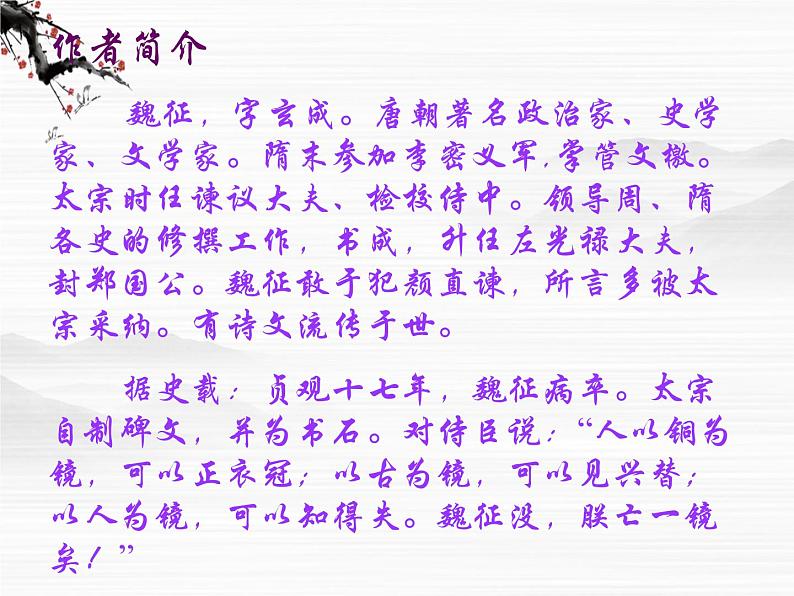 作者简介
魏征，字玄成。唐朝著名政治家、史学
家、文学家。隋末参加李密义军,掌管文檄。
太宗时任谏议大夫、检校侍中。领导周、隋
各史的修撰工作，书成，升任左光禄大夫，
封郑国公。魏征敢于犯颜直谏，所言多被太
宗采纳。有诗文流传于世。
据史载：贞观十七年，魏征病卒。太宗
自制碑文，并为书石。对侍臣说：“人以铜为
镜，可以正衣冠；以古为镜，可以见兴替；
以人为镜，可以知得失。魏征没，朕亡一镜
矣！”